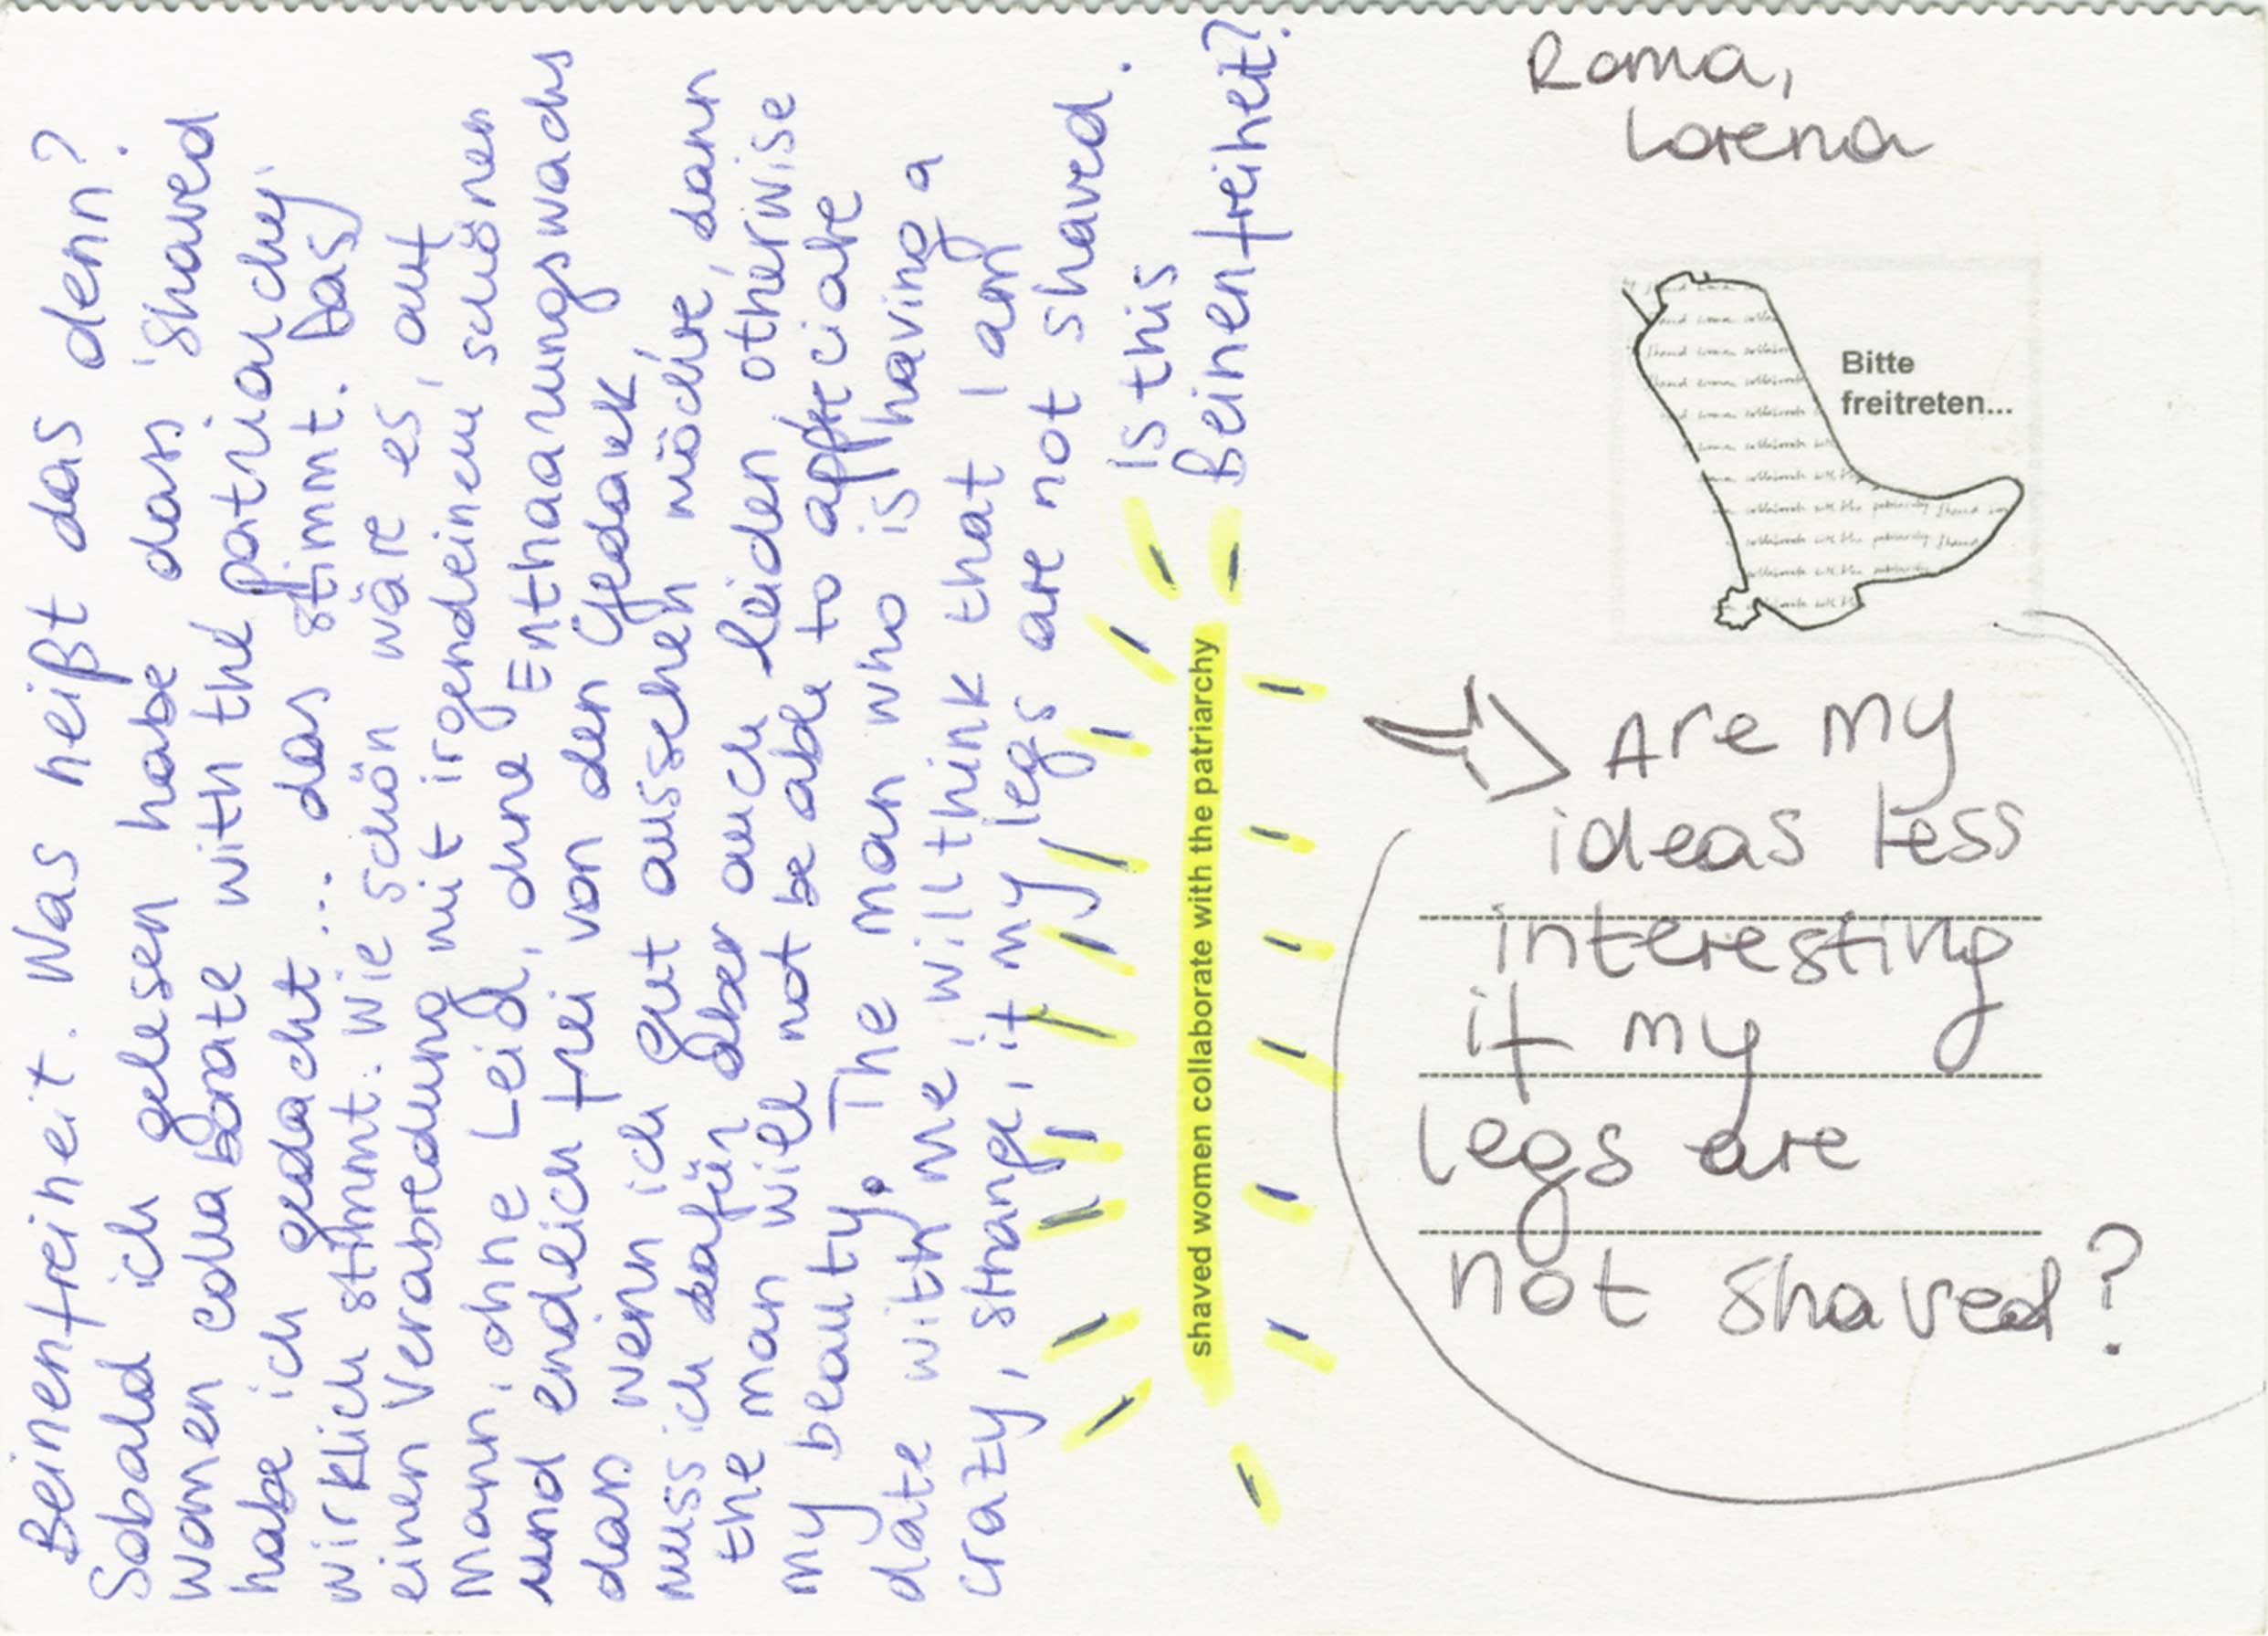 Beinenfreiheit. Was heißt das denn?
Sobald ich gelesen habe dass 'shaved
women collaborate with the patriarchy'
habe ich gedacht ... das stimmt. Das
wirklich stimmt. Wie schön wäre es, auf
einen Verabredung mit irgendeinem schönen
Mann, ohne Leid, ohne Enthaarungswachs
und endlich frei von den Gedank,
dass wenn ich gut aussehen möchte, dann
muss ich dafür aber auch leiden otherwise
the man will not be able to appreciate
my beauty. The man who is having a
date with me, will think that I am
crazy, strange, if my legs are not shaved.
Is this
Beinenfreiheit?
shaved women collaborate with the patriarchy
Roma,
Lorena
Bitte
freitreten...
Are my
ideas less
interesting
if my
legs are
not shaved?